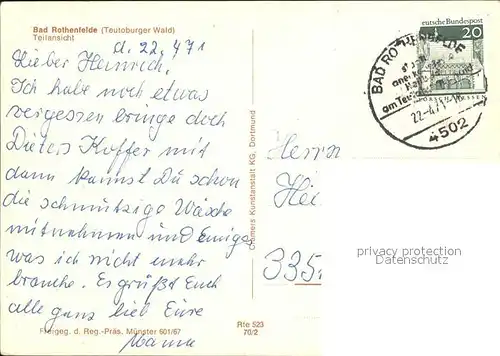 Bad Rothenfelde (Teutoburger Wald)
Teilansicht
d. 22.4.71
Lieber Heinrich,
Ich habe noch etwas
vergessen bringe doch
Dieters Koffer mit
dann kannst Du schon
die schmutzige Wäsche
mitnehmen und Einiges
was ich nicht mehr
brauche. Es grüßt Euch
alle ganz lieb Eure
Mama
Freigeg. d. Reg.-Präs. Münster 601/67
Rte 523
70/2
Cramers Kunstanstalt KG, Dortmund
eutsche Bundespost
20
BAD ROTHENFELDE
am Teu
22.-4.71
4502
Herrn
Hei
335
privacy protection
Datenschutz